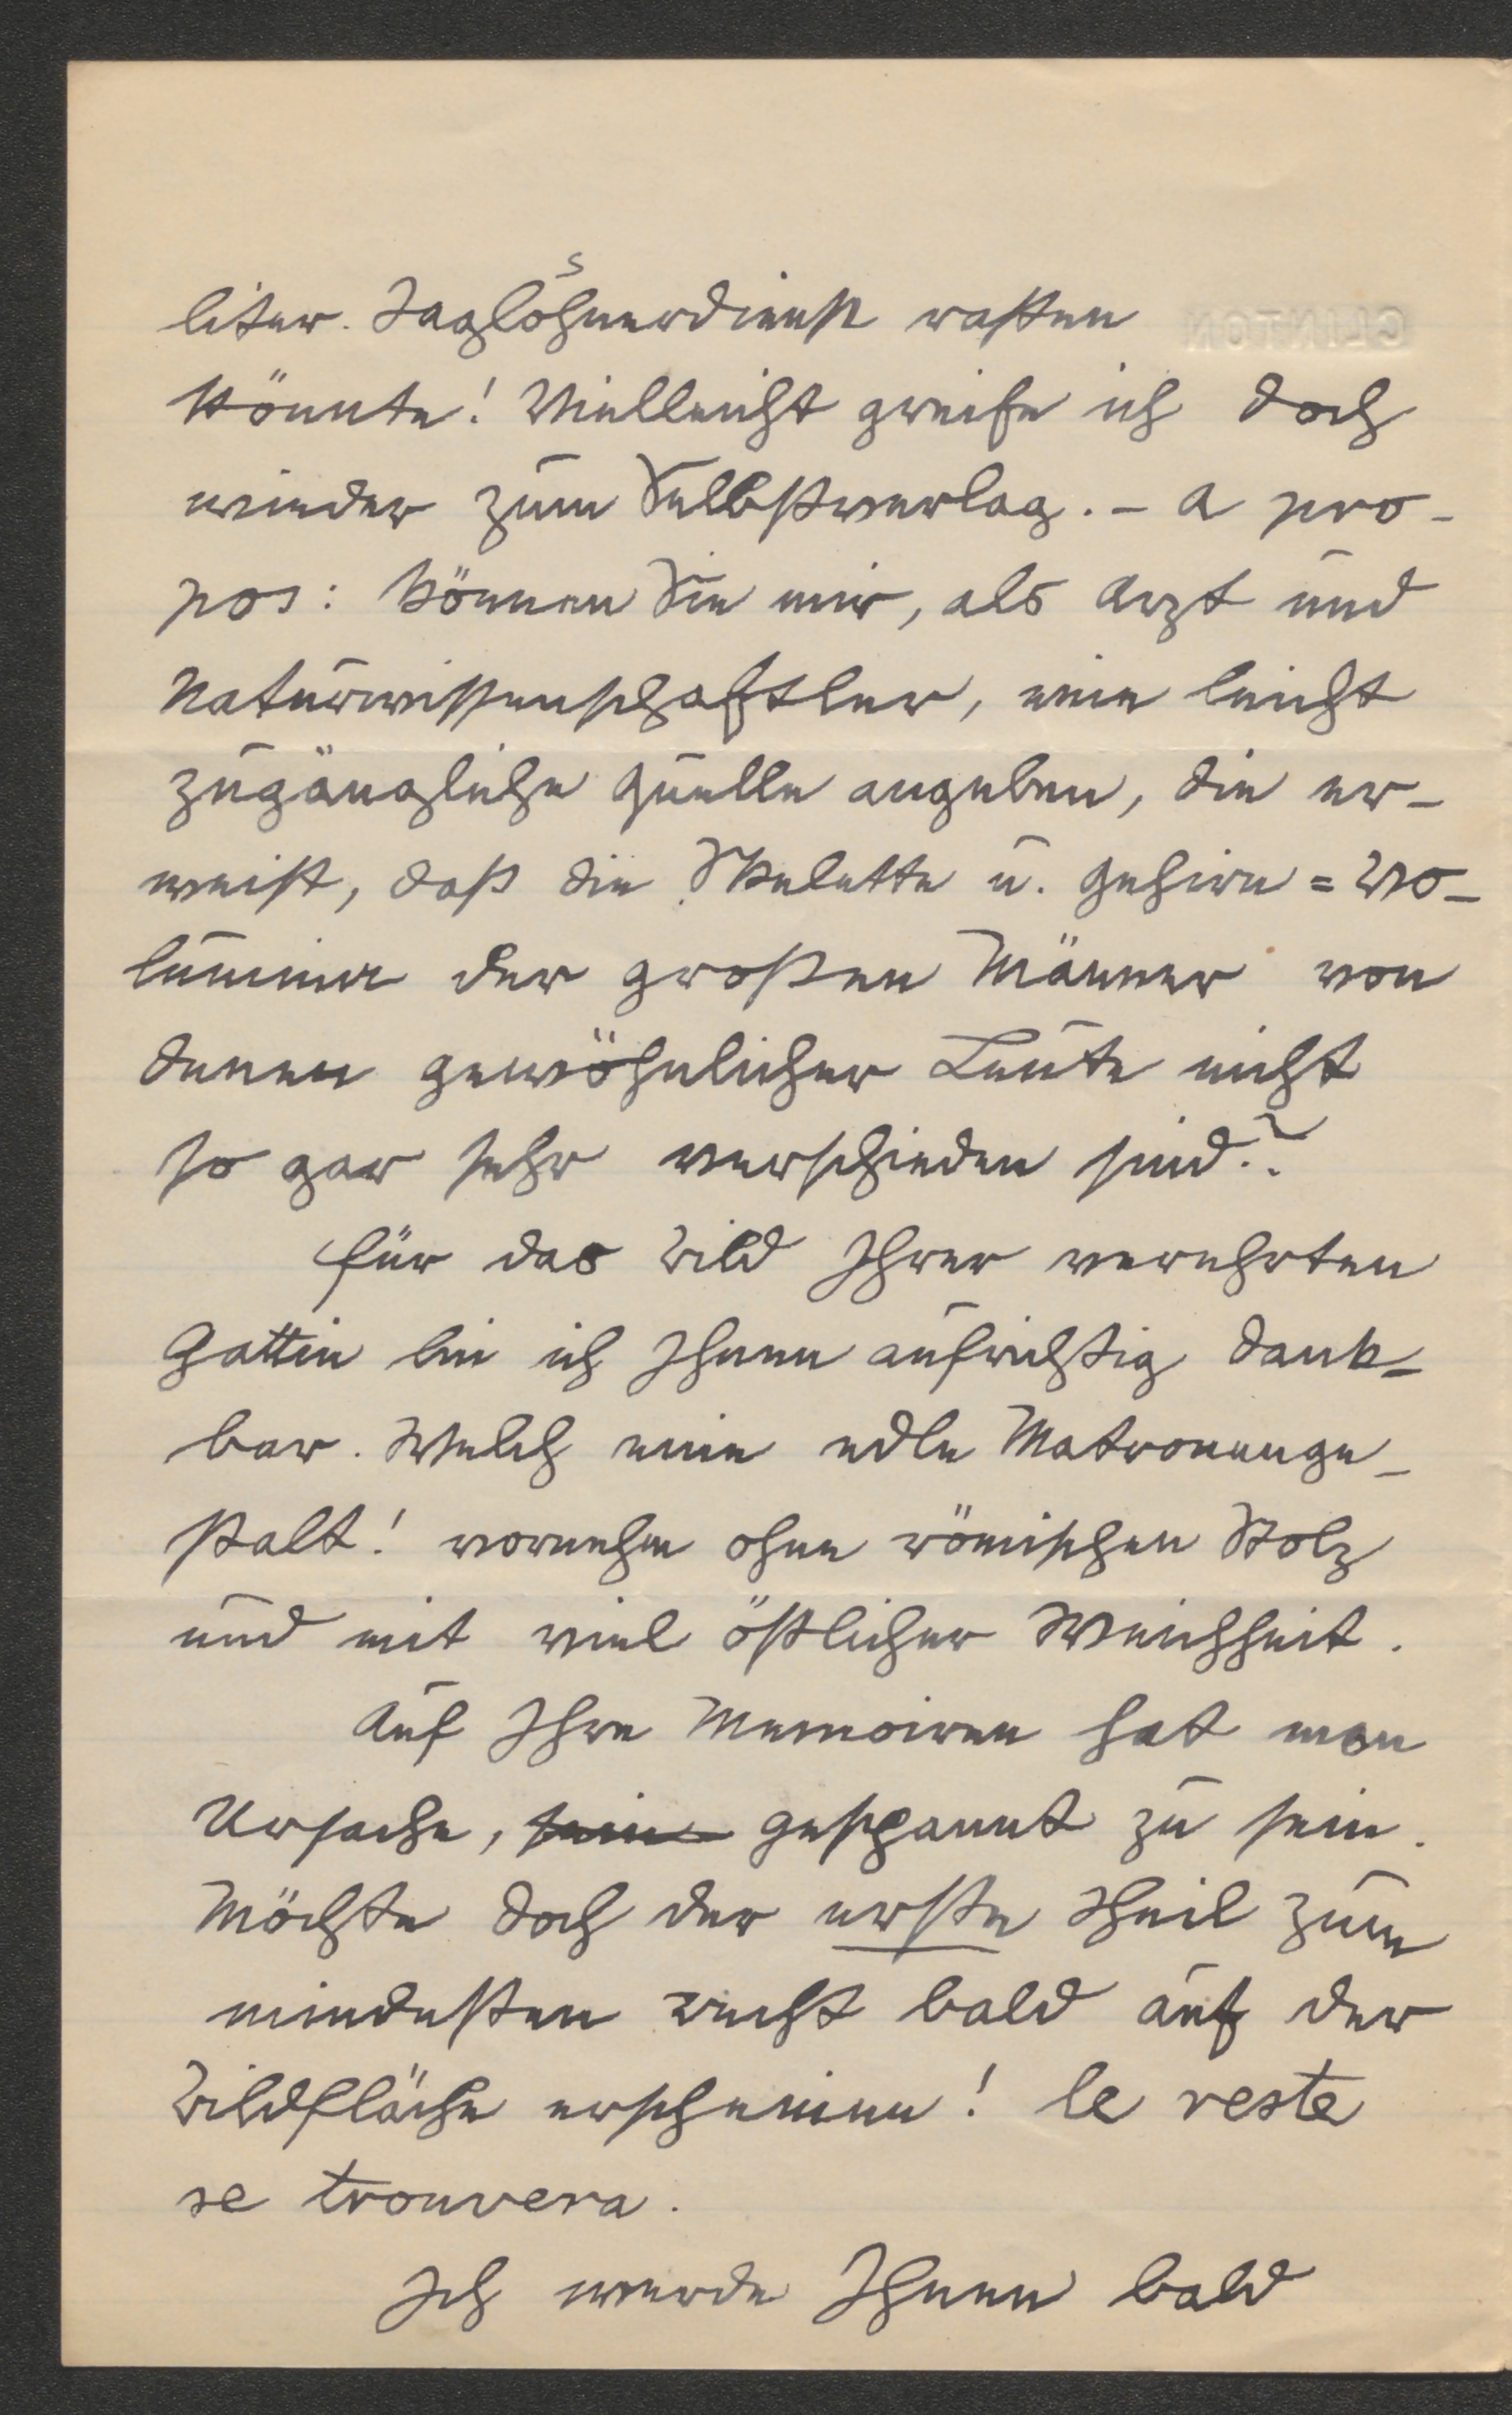 liter. Taglöhnerdienst rasten
könnte! Vielleicht greife ich doch
wieder zum Selbstverlag. – A pro-
pos: können Sie mir, als Arzt und
Naturwissenschaftler, eine leicht
zugängliche Quelle angeben, die er-
weist, daß die Skelette u. Gehirn=Vo-
lumina der großen Männer von
denen gewöhnlicher Leute nicht
so gar sehr verschieden sind??
Für das Bild Ihrer verehrten
Gattin bin ich Ihnen aufrichtig dank-
bar. Welch eine edle Matronenge-
stalt! vornehm ohne römischen Stolz
und mit viel östlicher Weichheit.
Auf Ihre Memoiren hat man
Ursache, sein gespannt zu sein.
Möchte doch der erste Theil zum
mindesten recht bald auf der
Bildfläche erscheinen! le reste
se trouvera.
Ich werde Ihnen bald
CLINTON